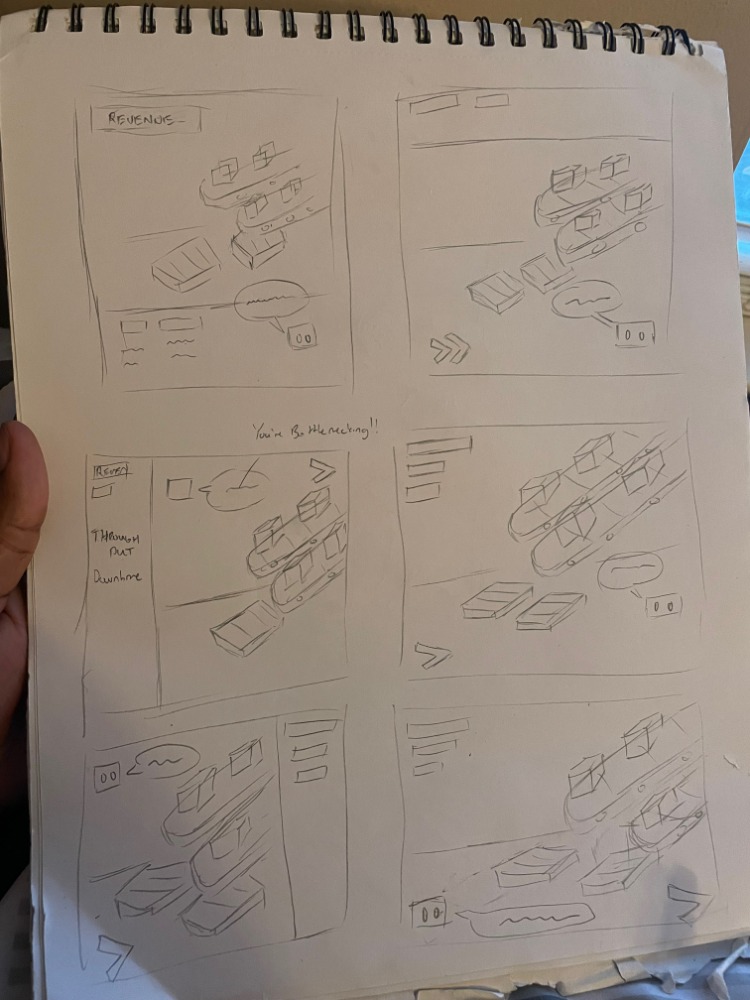 REVENUE
You're Bottlenecking!!
REVEN
THROUGH
PUT
Downtime